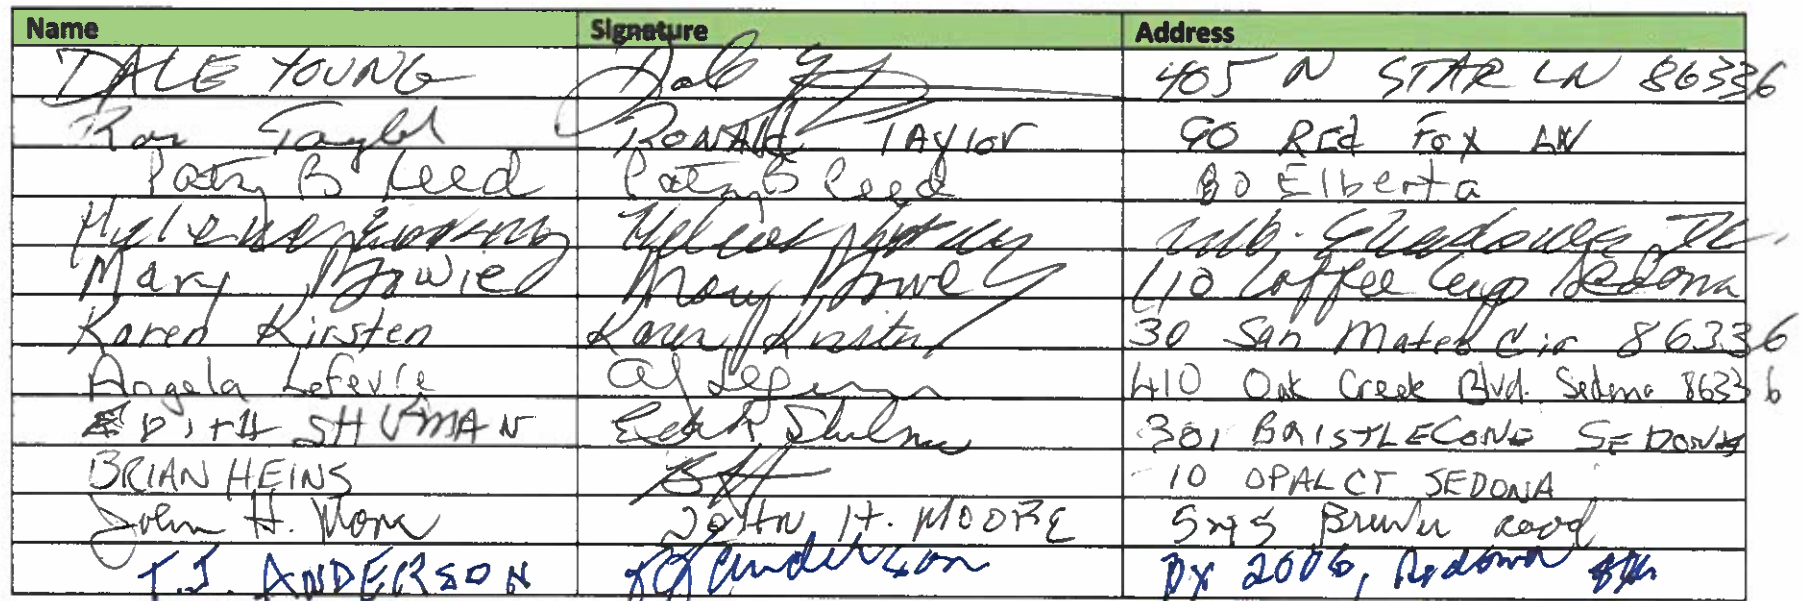 Name Signature Address
DALE YOUNG Dale 405 N STAR LN 86336
Ron Taylor RONALD TAYLOR 90 REd Fox LN
Patsy B Reed Patsy B Reed 80 Elberta
Shadows
Mary Bowie Mary 110 Coffee Cup Sedona
Karen Kirsten Karen Kirsten 30 San Mateo Cir 86336
Angela Lefevre 410 Oak Creek Blvd. Sedona 86336
EDITH SHUMAN Edith 301 BRISTLECONE SEDONA
BRIAN HEINS BH 10 OPAL CT SEDONA
John H. Moore JOHN H. MOORE Brewer road
T.J. ANDERSON TJ Anderson BX 2006, Sedona